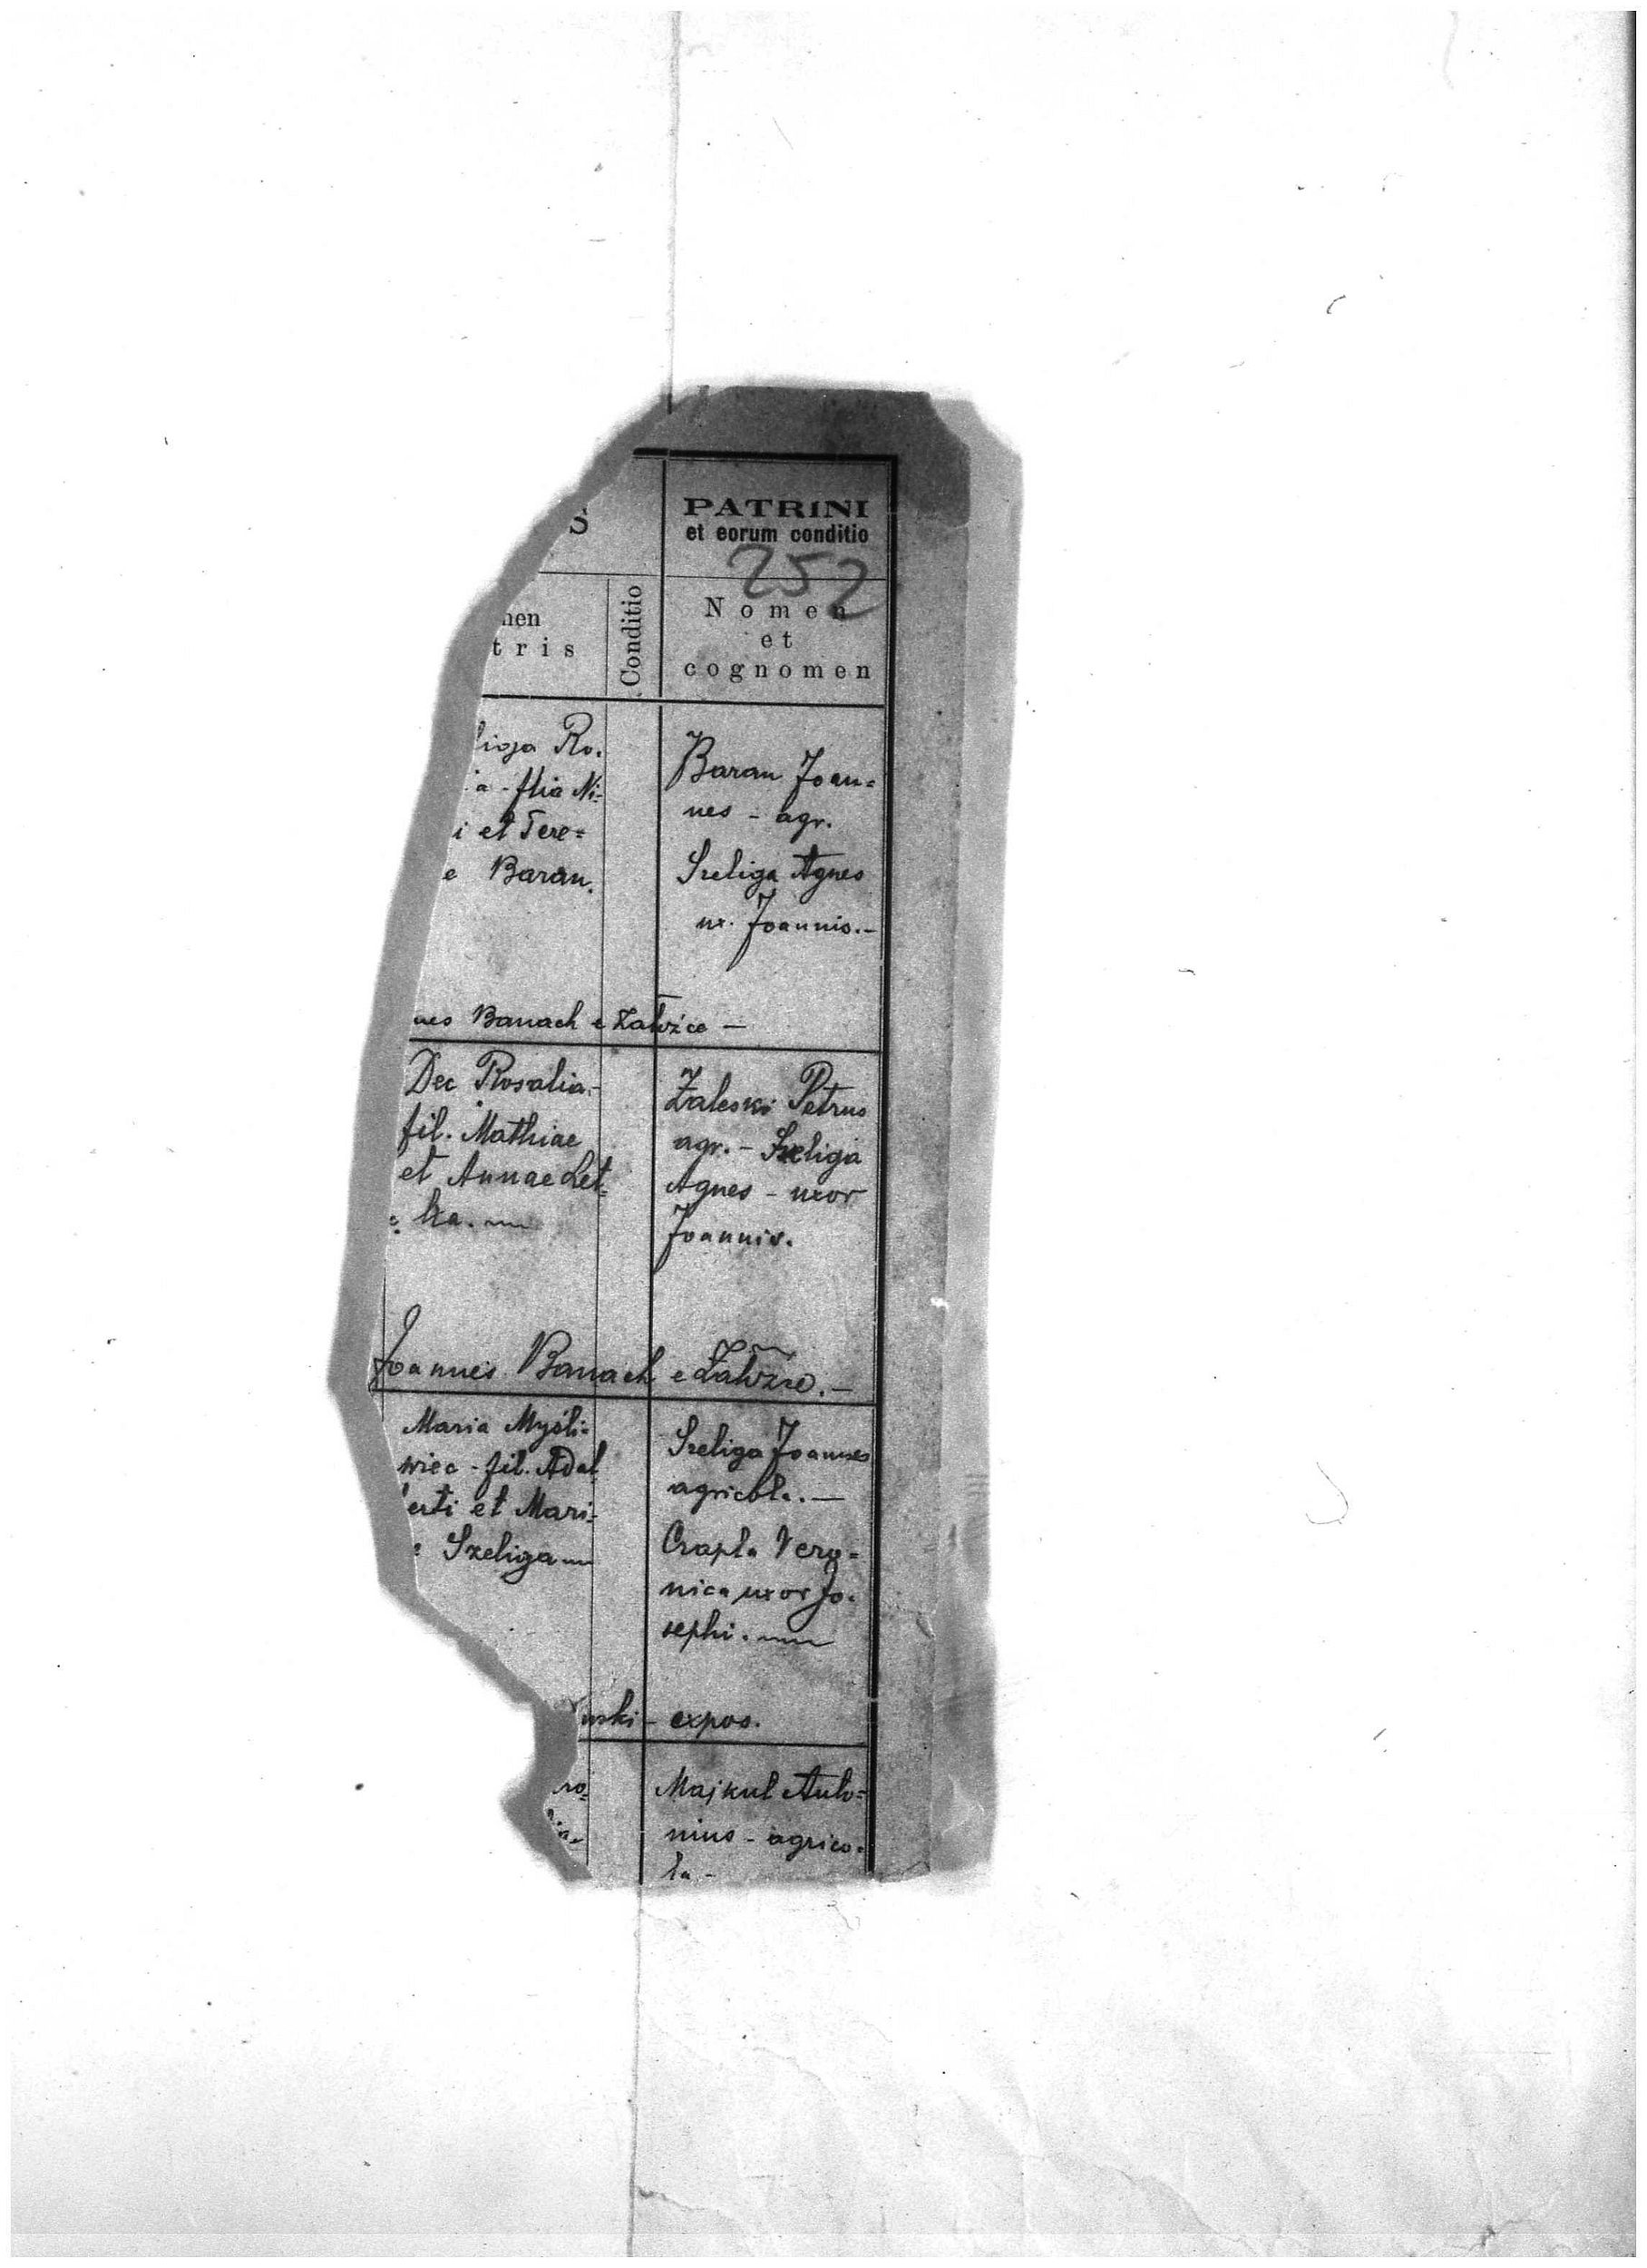 S
PATRINI
et eorum conditio
252
men
tris
Conditio
Nomen
et
cognomen
liga Ro-
a - filia Ni-
i et Tere=
e Baran.
Baran Joan=
nes - agr.
Szeliga Agnes
ux. Joannis.-
nes Banach e Załuże -
Dec Rosalia-
fil. Mathiae
et Annae Let=
ka.
Zaleski Petrus
agr. - Szeliga
Agnes - uxor
Joannis.
Joannes Banach e Załuże.-
Maria Myśli=
wiec - fil. Adal
berti et Mari-
e Szeliga
Szeliga Joannes
agricola. -
Czapla Vero=
nica uxor Jo-
sephi.
ski - expos.
ro=
Majkut Anto=
nius - agrico-
la -